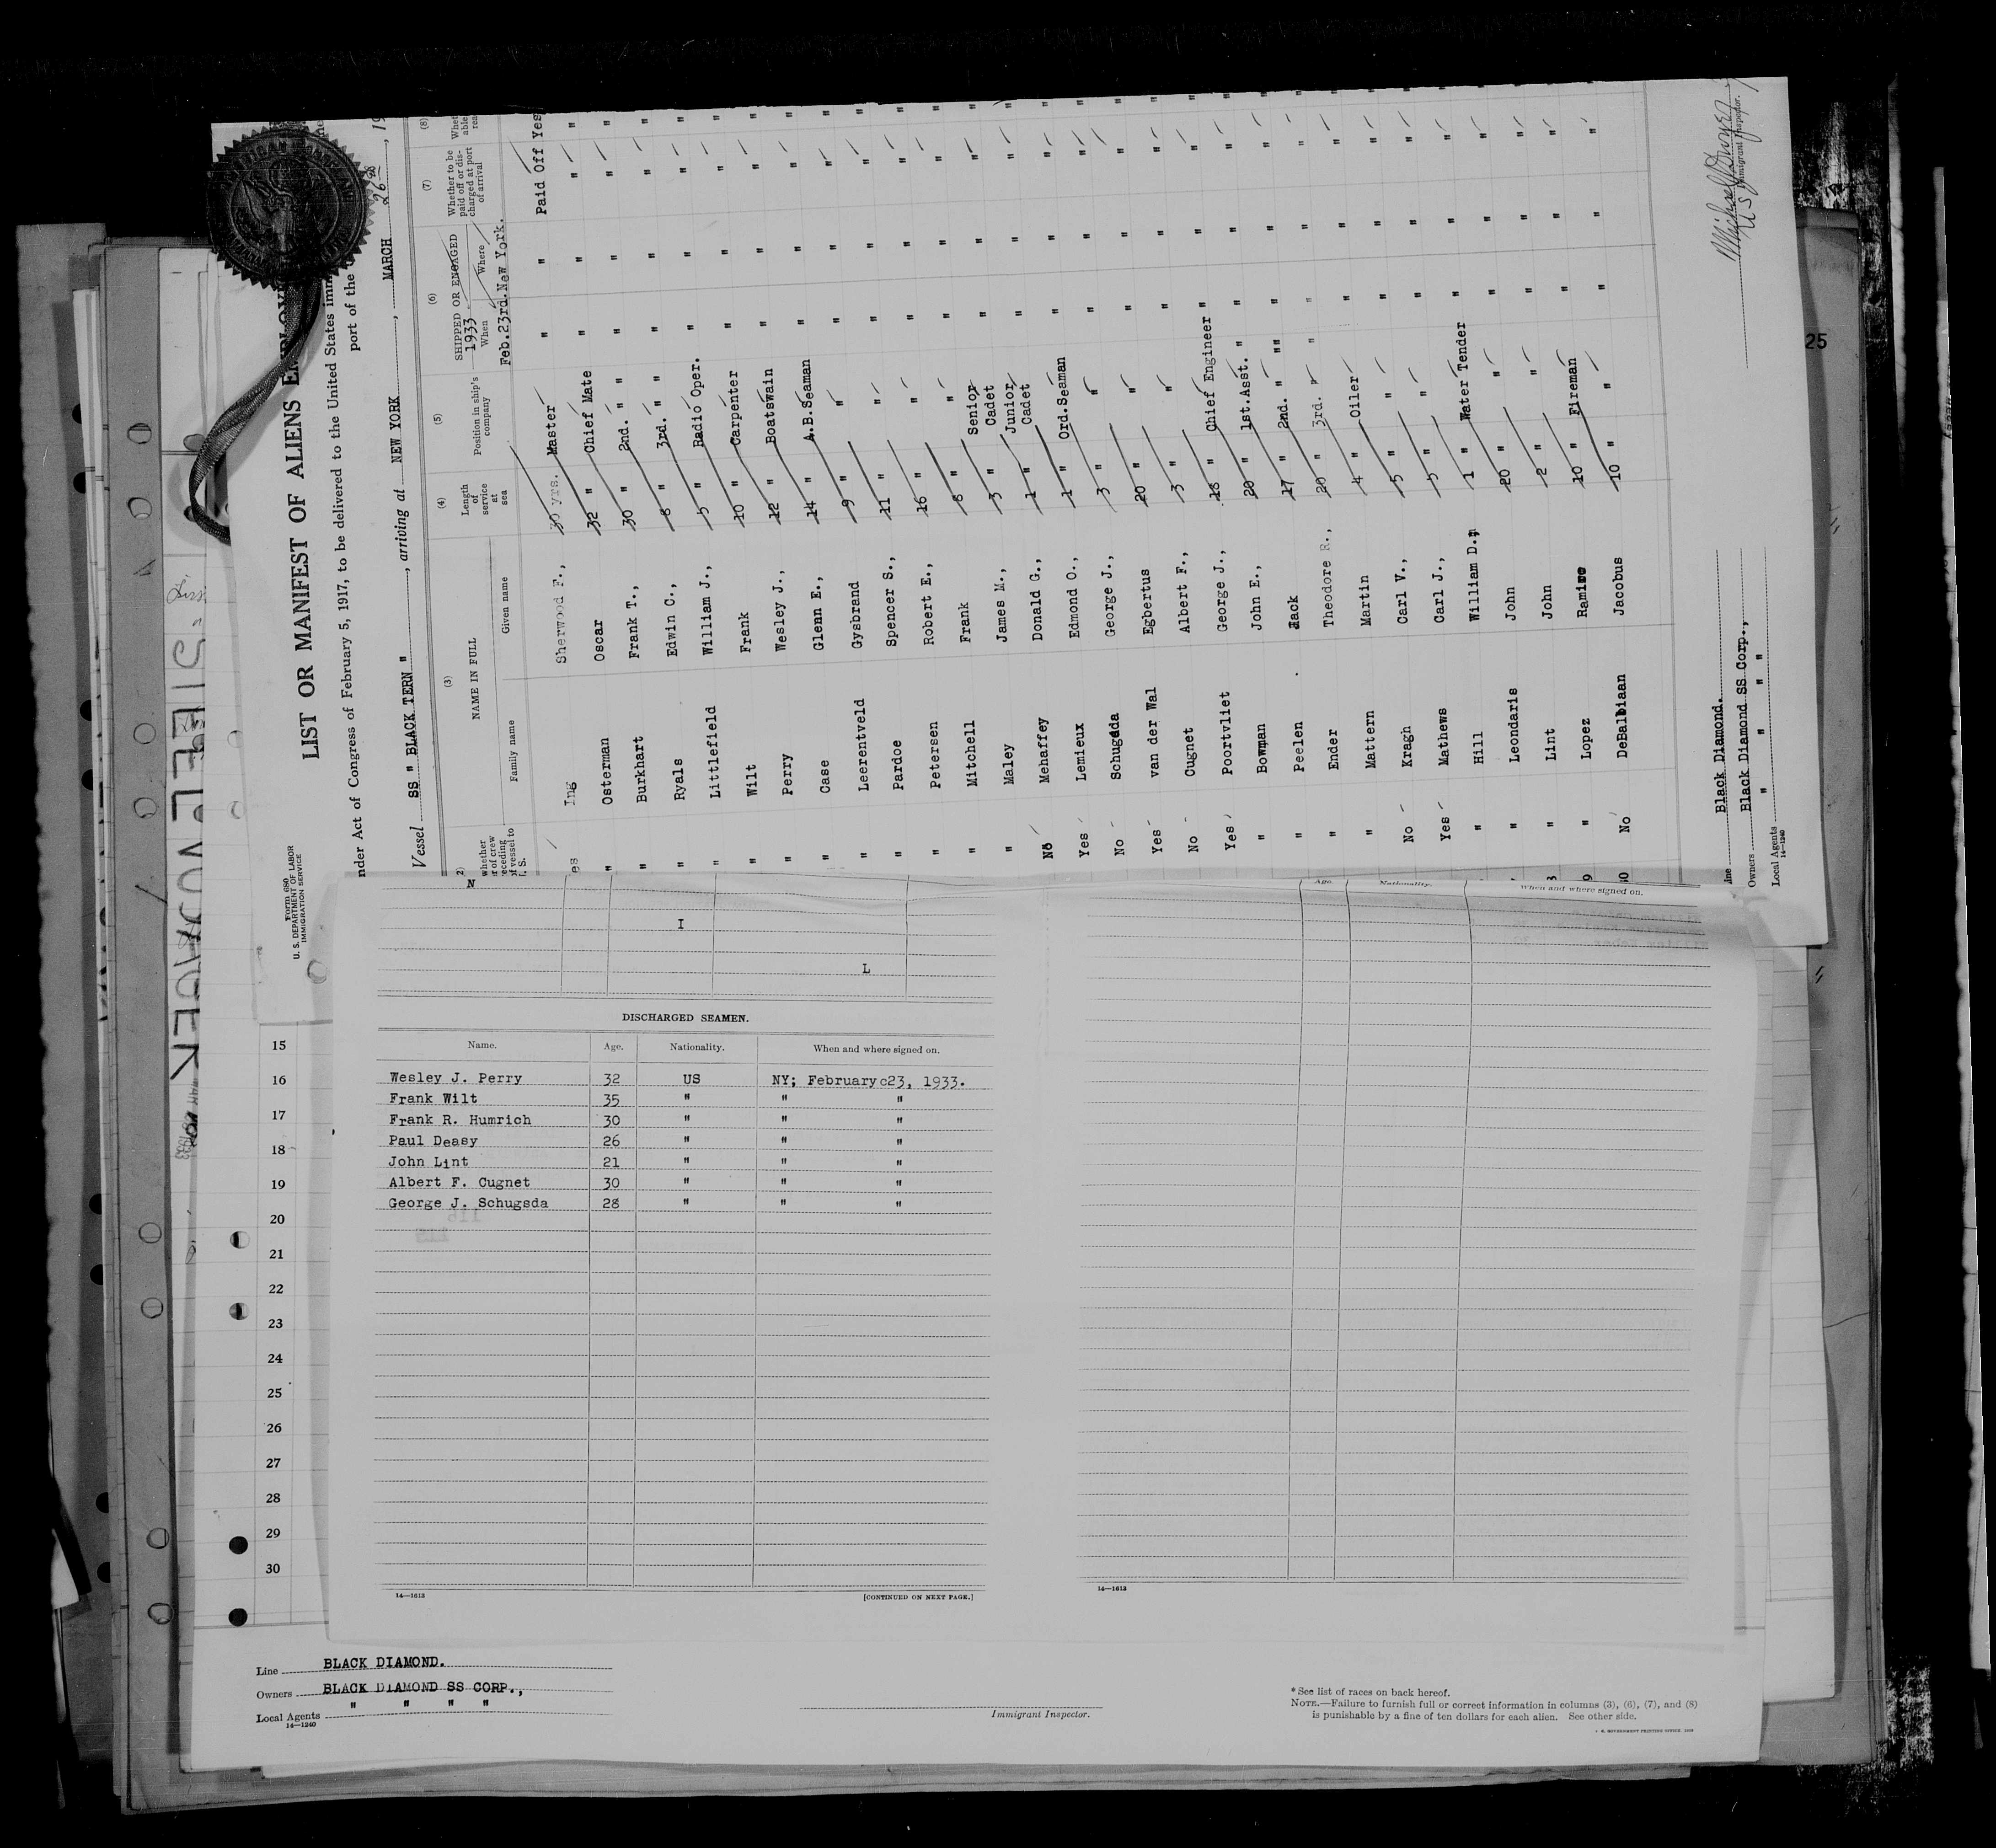 Form 680
U. S. DEPARTMENT OF LABOR
IMMIGRATION SERVICE
LIST OR MANIFEST OF ALIENS
nder Act of Congress of February 5, 1917, to be delivered to the United States
port of the
Vessel SS " BLACK TERN " , arriving at NEW YORK , MARCH 26th , 19
(3) (4) (5) (6) (7) (8)
NAME IN FULL
Family name Given name
Length of service at sea
Position in ship's company
SHIPPED OR ENGAGED
1933
When Where
Whether to be paid off or discharged at port of arrival
Feb.23rd.New York.
Ing Sherwood F., 30 yrs. Master " " Paid Off Yes
" Osterman Oscar 32 " Chief Mate " " " "
" Burkhart Frank T., 30 " 2nd. " " " " " "
" Ryals Edwin C., 8 " 3rd. " " " " " "
" Littlefield William J., 5 " Radio Oper. " " " "
" Wilt Frank 10 " Carpenter " " " "
" Perry Wesley J., 12 " Boatswain " " " "
" Case Glenn E., 14 " A.B.Seaman " " " "
" Leerentveld Gysbrand 9 " " " " " "
" Pardoe Spencer S., 11 " " " " " "
" Petersen Robert E., 16 " " " " " "
" Mitchell Frank 8 " " " " " "
" Maley James M., 3 " Senior Cadet " " " "
No Mehaffey Donald G., 1 " Junior Cadet " " " "
Yes Lemieux Edmond O., 1 " Ord.Seaman " " " "
No Schugsda George J., 3 " " " " "
Yes van der Wal Egbertus 20 " " " " " "
No Cugnet Albert F., 3 " " " " " "
Yes Poortvliet George J., 18 " Chief Engineer " " " "
" Bowman John E., 20 " 1st.Asst. " " " " "
" Peelen Jack 17 " 2nd. " "" " " "
" Ender Theodore R., 20 " 3rd. " " " " " "
" Mattern Martin 4 " Oiler " " " "
No Kragh Carl V., 5 " " " " " "
Yes Mathews Carl J., 5 " " " " " "
" Hill William D., 1 " Water Tender " " " "
" Leondaris John 20 " " " " " "
" Lint John 2 " " " " " "
" Lopez 10 " Fireman " " "
No DeBalbiaan Jacobus 10 " " " " "
Black Diamond.
Owners Black Diamond SS Corp.,
Local Agents " " " "
14—1240
Immigrant Inspector.
25
N
I
L
Age. Nationality. When and where signed on.
DISCHARGED SEAMEN.
Name. Age. Nationality. When and where signed on.
Wesley J. Perry 32 US NY; February c23, 1933.
Frank Wilt 35 " " "
Frank R. Humrich 30 " " "
Paul Deasy 26 " " "
John Lint 21 " " "
Albert F. Cugnet 30 " " "
George J. Schugsda 28 " " "
14—1613 [CONTINUED ON NEXT PAGE.]
14—1613
15
16
17
18
19
20
21
22
23
24
25
26
27
28
29
30
Line BLACK DIAMOND.
Owners BLACK DIAMOND SS CORP.,
Local Agents " " " "
14—1240
Immigrant Inspector.
* See list of races on back hereof.
NOTE.—Failure to furnish full or correct information in columns (3), (6), (7), and (8)
is punishable by a fine of ten dollars for each alien. See other side.